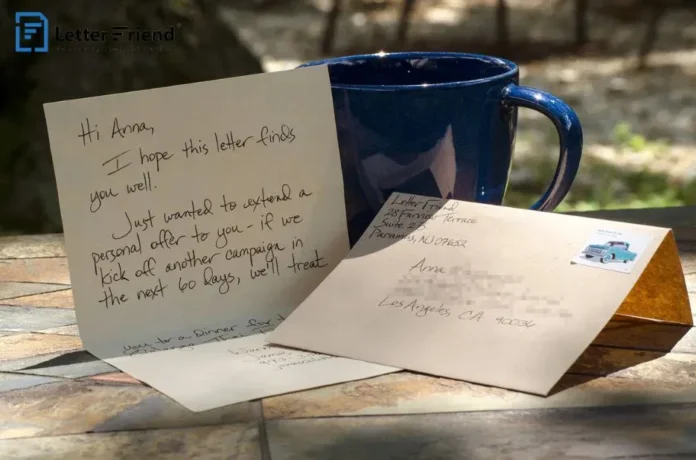 Letter Friend
Hi Anna,
I hope this letter finds
you well.
Just wanted to extend a
personal offer to you - if we
kick off another campaign in
the next 60 days, we'll treat
you to a Dinner for
Letter Friend
Suite
Paramus, NJ 07652
Anna
Los Angeles, CA 90036